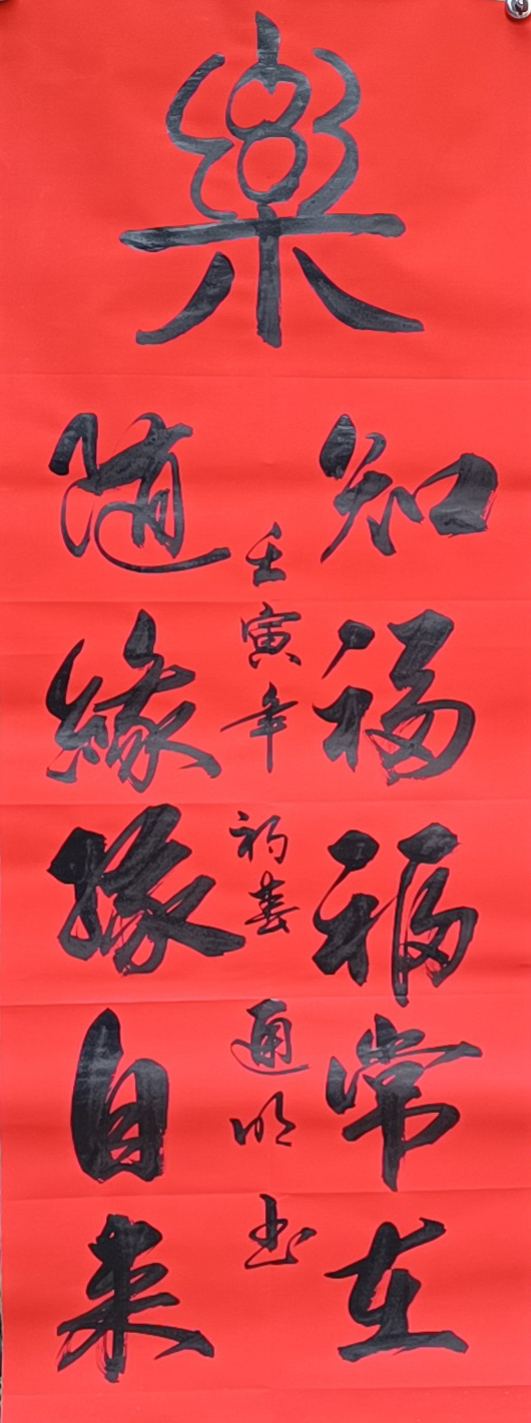 樂
知福福常在
隨緣緣自来
壬寅年 初春 通明书